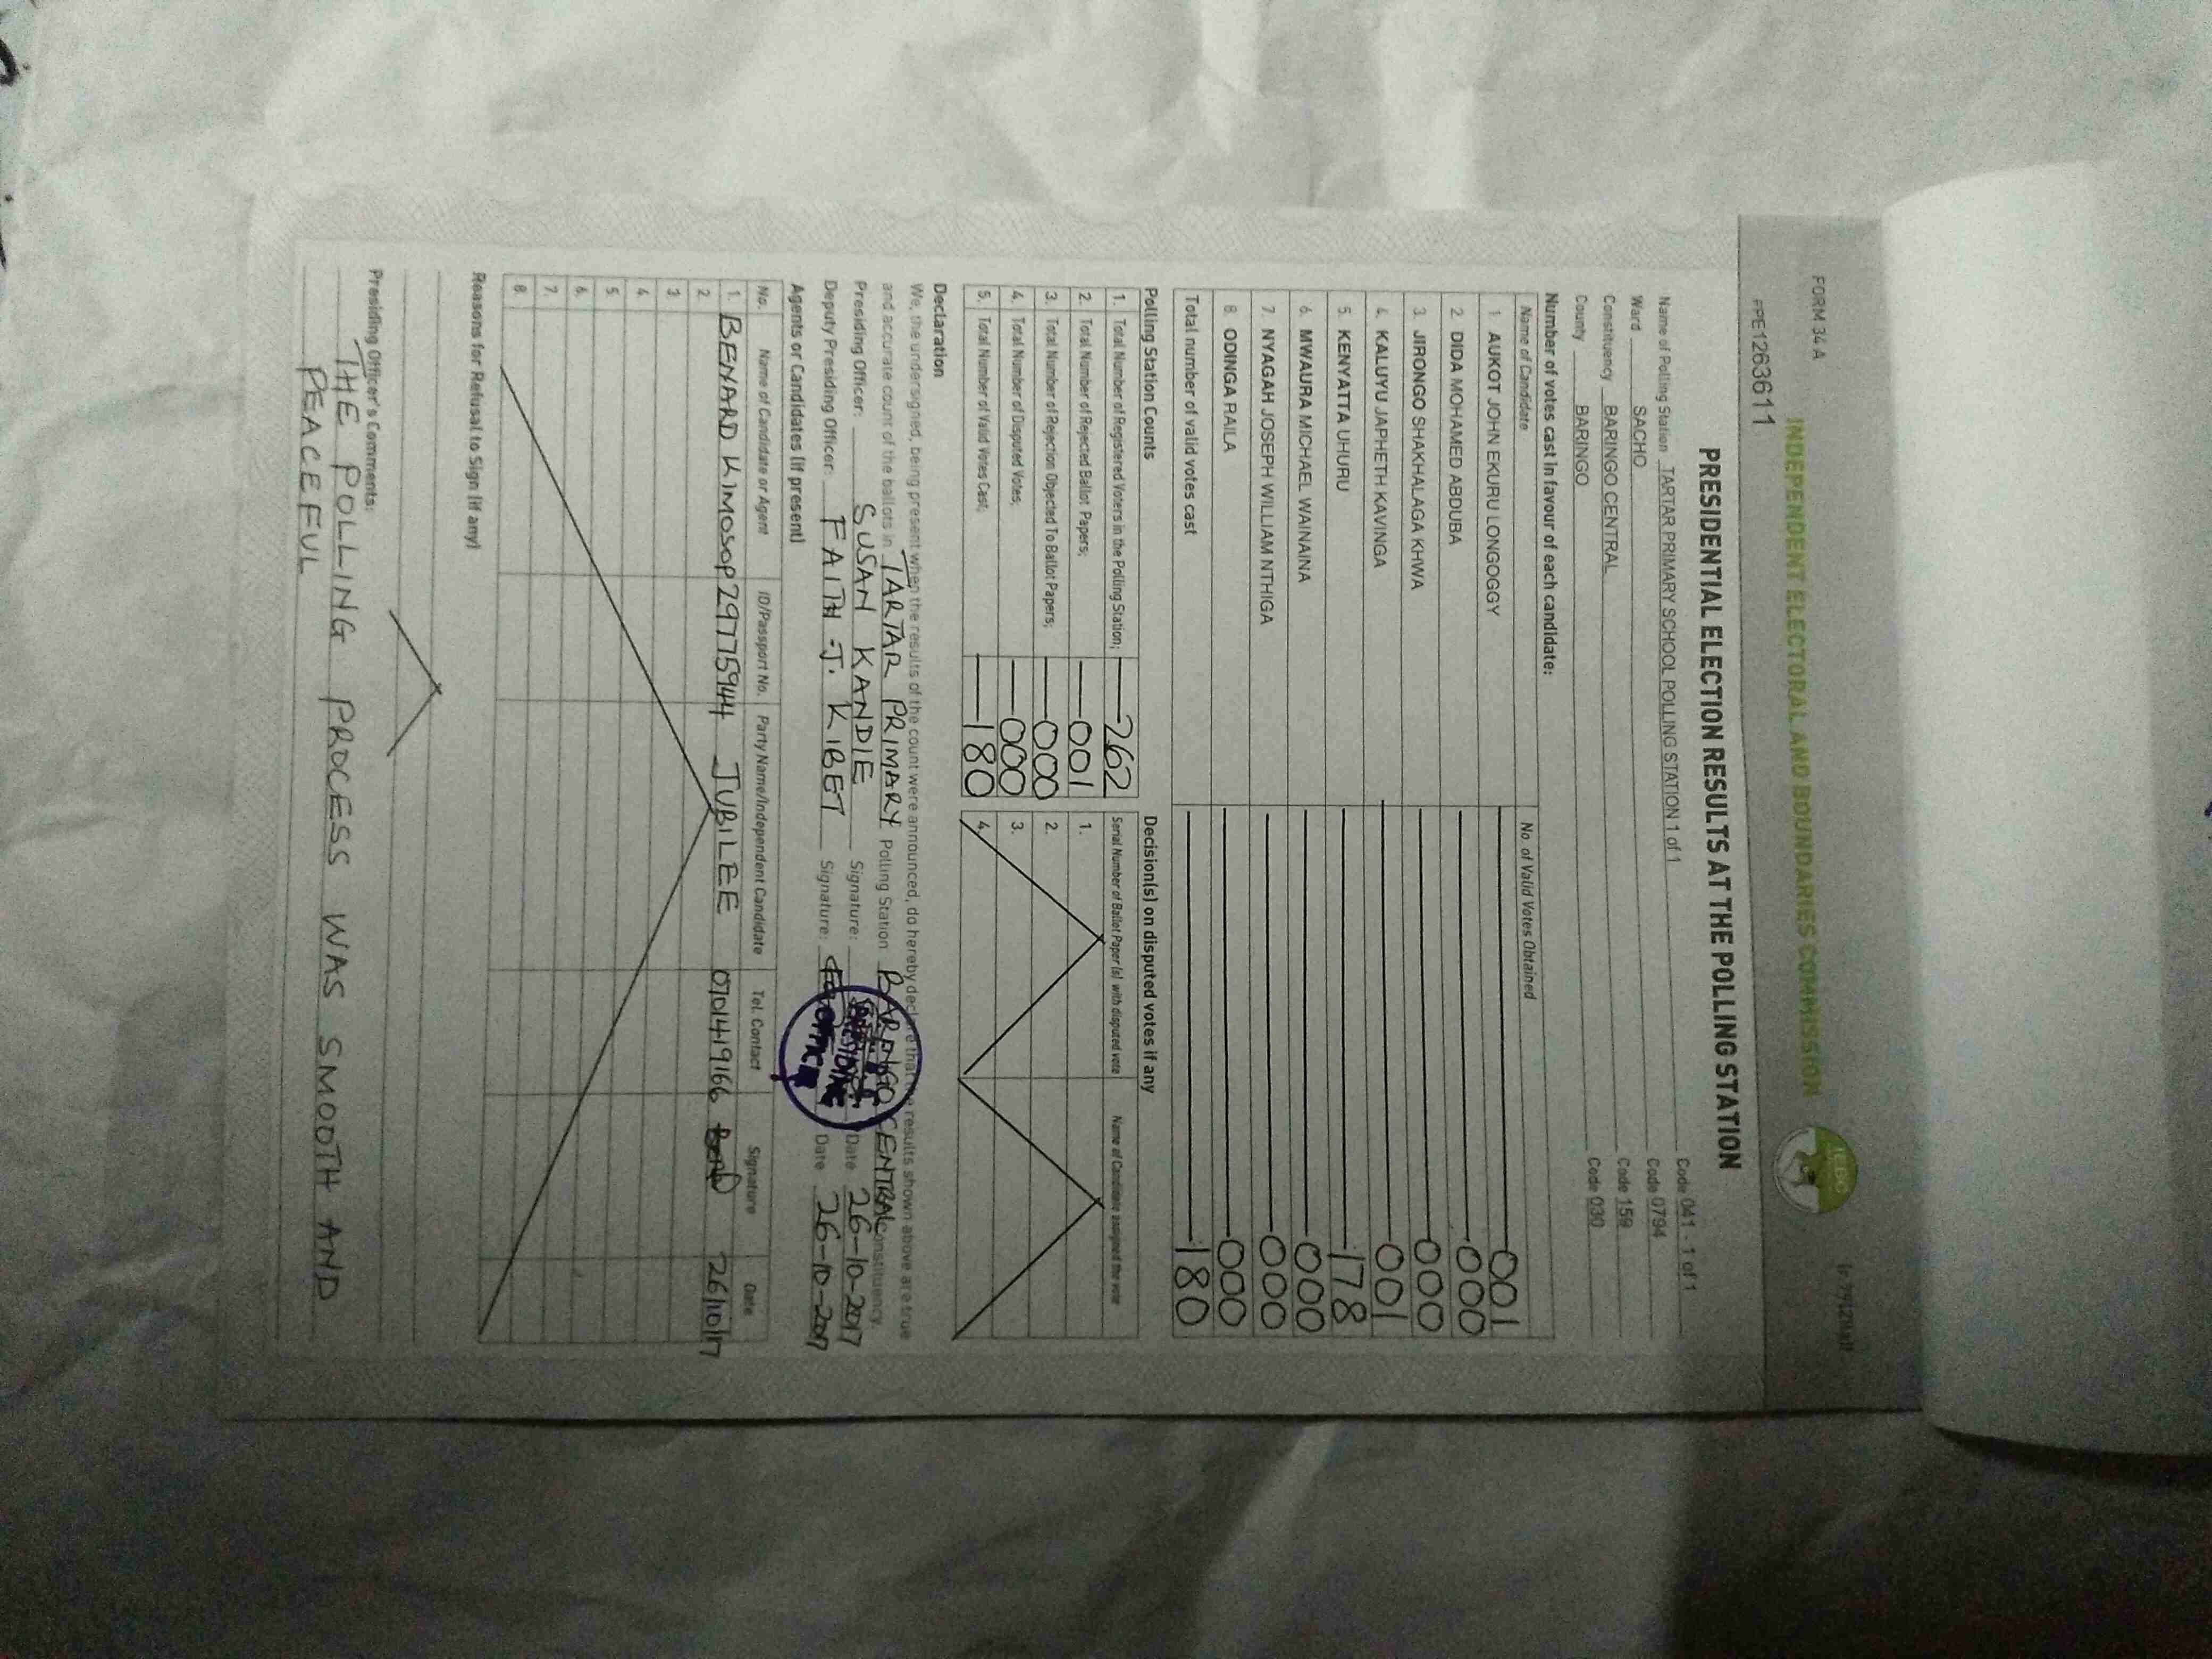 FORM 34 A
INDEPENDENT ELECTORAL AND BOUNDARIES COMMISSION
IEBC
PRESIDENTIAL ELECTION RESULTS AT THE POLLING STATION
Name of Polling Station TARTAR PRIMARY SCHOOL POLLING STATION 1 of 1 Code 041 - 1 of 1
Ward SACHO Code 0794
Constituency BARINGO CENTRAL Code 159
County BARINGO Code 030
Number of votes cast in favour of each candidate:
Name of Candidate No. of Valid Votes Obtained
1. AUKOT JOHN EKURU LONGOGGY 001
2. DIDA MOHAMED ABDUBA 000
3. JIRONGO SHAKHALAGA KHWA 000
4. KALUYU JAPHETH KAVINGA 001
5. KENYATTA UHURU 178
6. MWAURA MICHAEL WAINAINA 000
7. NYAGAH JOSEPH WILLIAM NTHIGA 000
8. ODINGA RAILA 000
Total number of valid votes cast 180
Polling Station Counts
1. Total Number of Registered Voters in the Polling Station; 262
2. Total Number of Rejected Ballot Papers; 001
3. Total Number of Rejection Objected To Ballot Papers; 000
4. Total Number of Disputed Votes; 000
5. Total Number of Valid Votes Cast; 180
Decision(s) on disputed votes if any
Serial Number of Ballot Paper (s) with disputed vote Name of Candidate assigned the vote
1.
2.
3.
4.
Declaration
We, the undersigned, being present when the results of the count were announced, do hereby declare that the results shown above are true
and accurate count of the ballots in TARTAR PRIMARY Polling Station BARINGO CENTRAL Constituency.
Presiding Officer: SUSAN KANDIE Signature: Date 26-10-2017
Deputy Presiding Officer: FAITH J. KIBET Signature: Date 26-10-2017
PRESIDING OFFICER
Agents or Candidates (if present)
No. Name of Candidate or Agent ID/Passport No. Party Name/Independent Candidate Tel. Contact Signature Date
1. BENARD KIMOSOP 29775944 JUBILEE 0701419166 26/10/17
2.
3.
4.
5.
6.
7.
8.
Reasons for Refusal to Sign (if any)
Presiding Officer's Comments:
THE POLLING PROCESS WAS SMOOTH AND
PEACEFUL